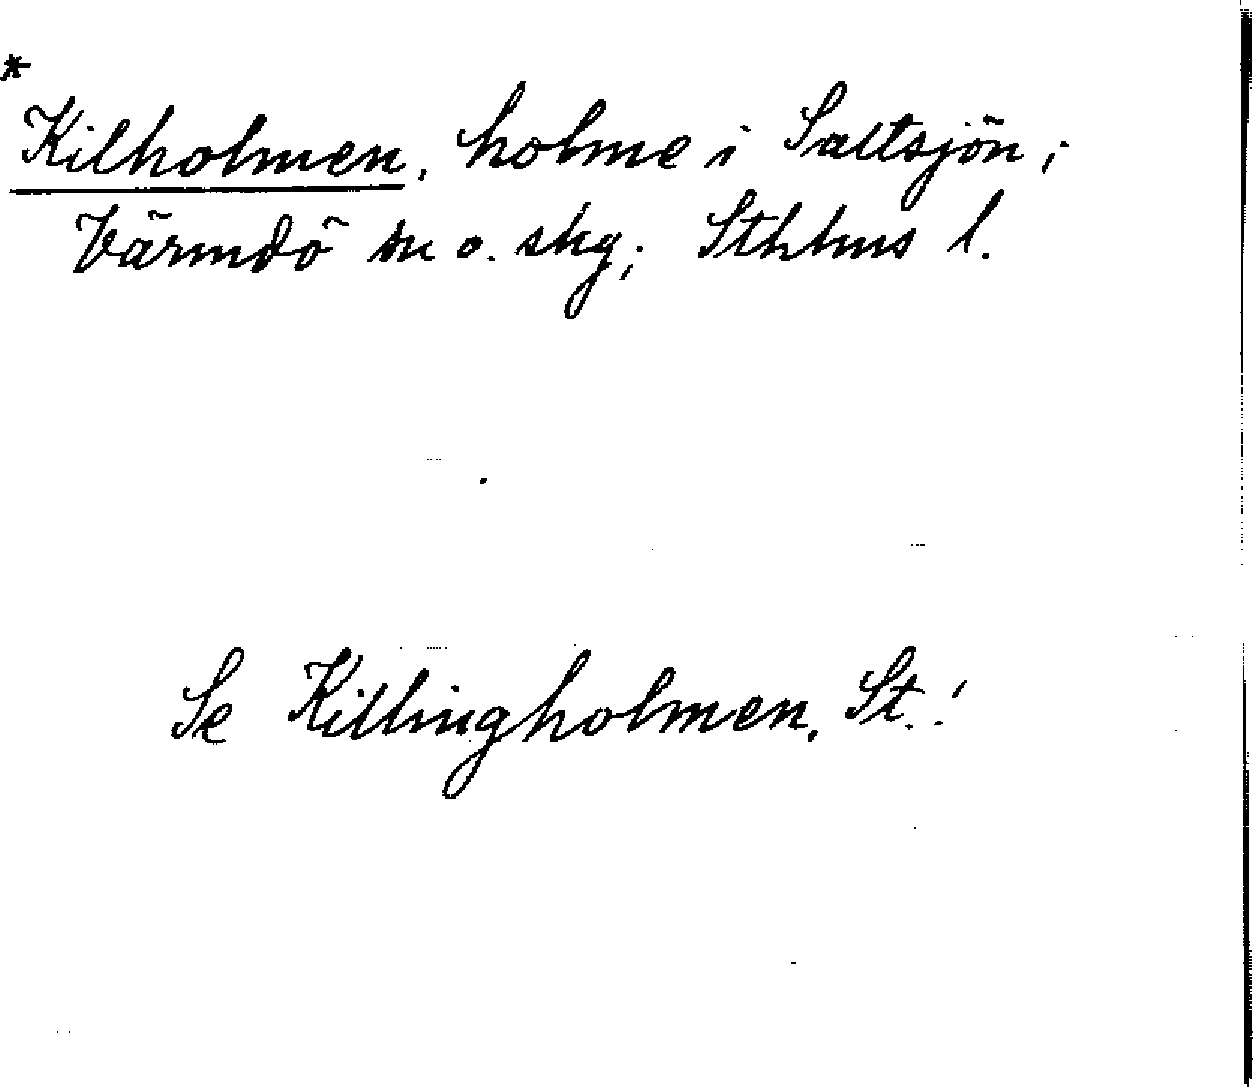 *
Kilholmen, holme i Saltsjön;
Värmdö sn o. skg; Sthlms l.
Se Killingholmen, St.!